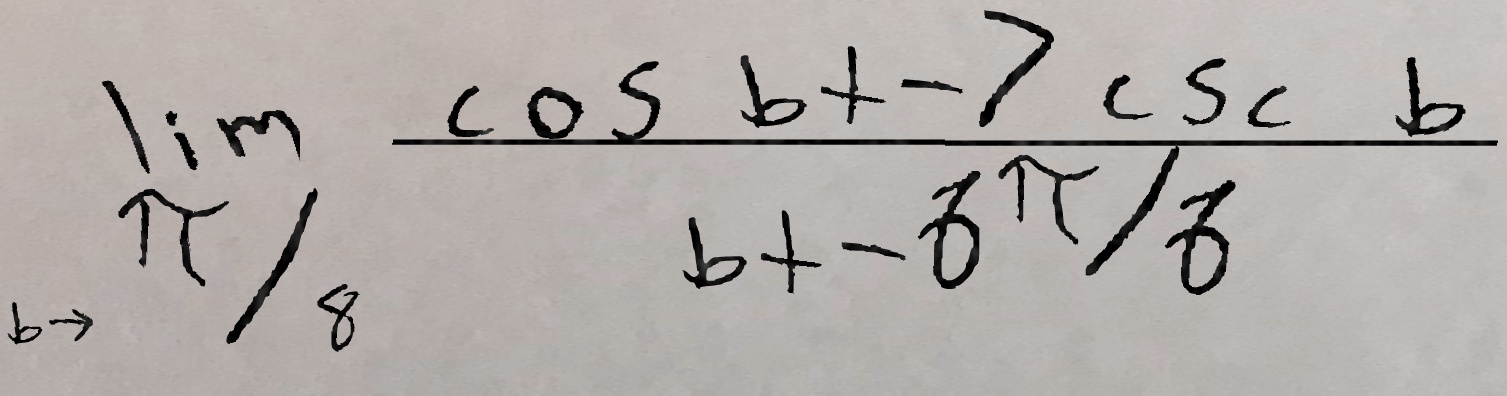 lim b→π/8 (cos b + -7 csc b)/(b + -8π/8)